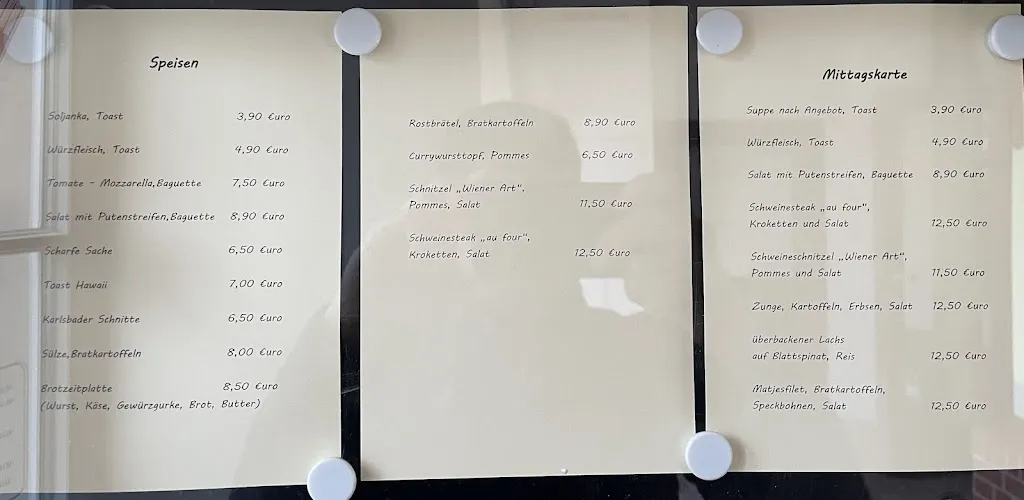 Speisen
Soljanka, Toast 3,90 €uro
Würzfleisch, Toast 4,90 €uro
Tomate - Mozzarella,Baguette 7,50 €uro
Salat mit Putenstreifen,Baguette 8,90 €uro
Scharfe Sache 6,50 €uro
Toast Hawaii 7,00 €uro
Karlsbader Schnitte 6,50 €uro
Sülze,Bratkartoffeln 8,00 €uro
Brotzeitplatte 8,50 €uro
(Wurst, Käse, Gewürzgurke, Brot, Butter)
Rostbrätel, Bratkartoffeln 8,90 €uro
Currywursttopf, Pommes 6,50 €uro
Schnitzel „Wiener Art“,
Pommes, Salat 11,50 €uro
Schweinesteak „au four“,
Kroketten, Salat 12,50 €uro
Mittagskarte
Suppe nach Angebot, Toast 3,90 €uro
Würzfleisch, Toast 4,90 €uro
Salat mit Putenstreifen, Baguette 8,90 €uro
Schweinesteak „au four“,
Kroketten und Salat 12,50 €uro
Schweineschnitzel „Wiener Art“,
Pommes und Salat 11,50 €uro
Zunge, Kartoffeln, Erbsen, Salat 12,50 €uro
überbackener Lachs
auf Blattspinat, Reis 12,50 €uro
Matjesfilet, Bratkartoffeln,
Speckbohnen, Salat 12,50 €uro